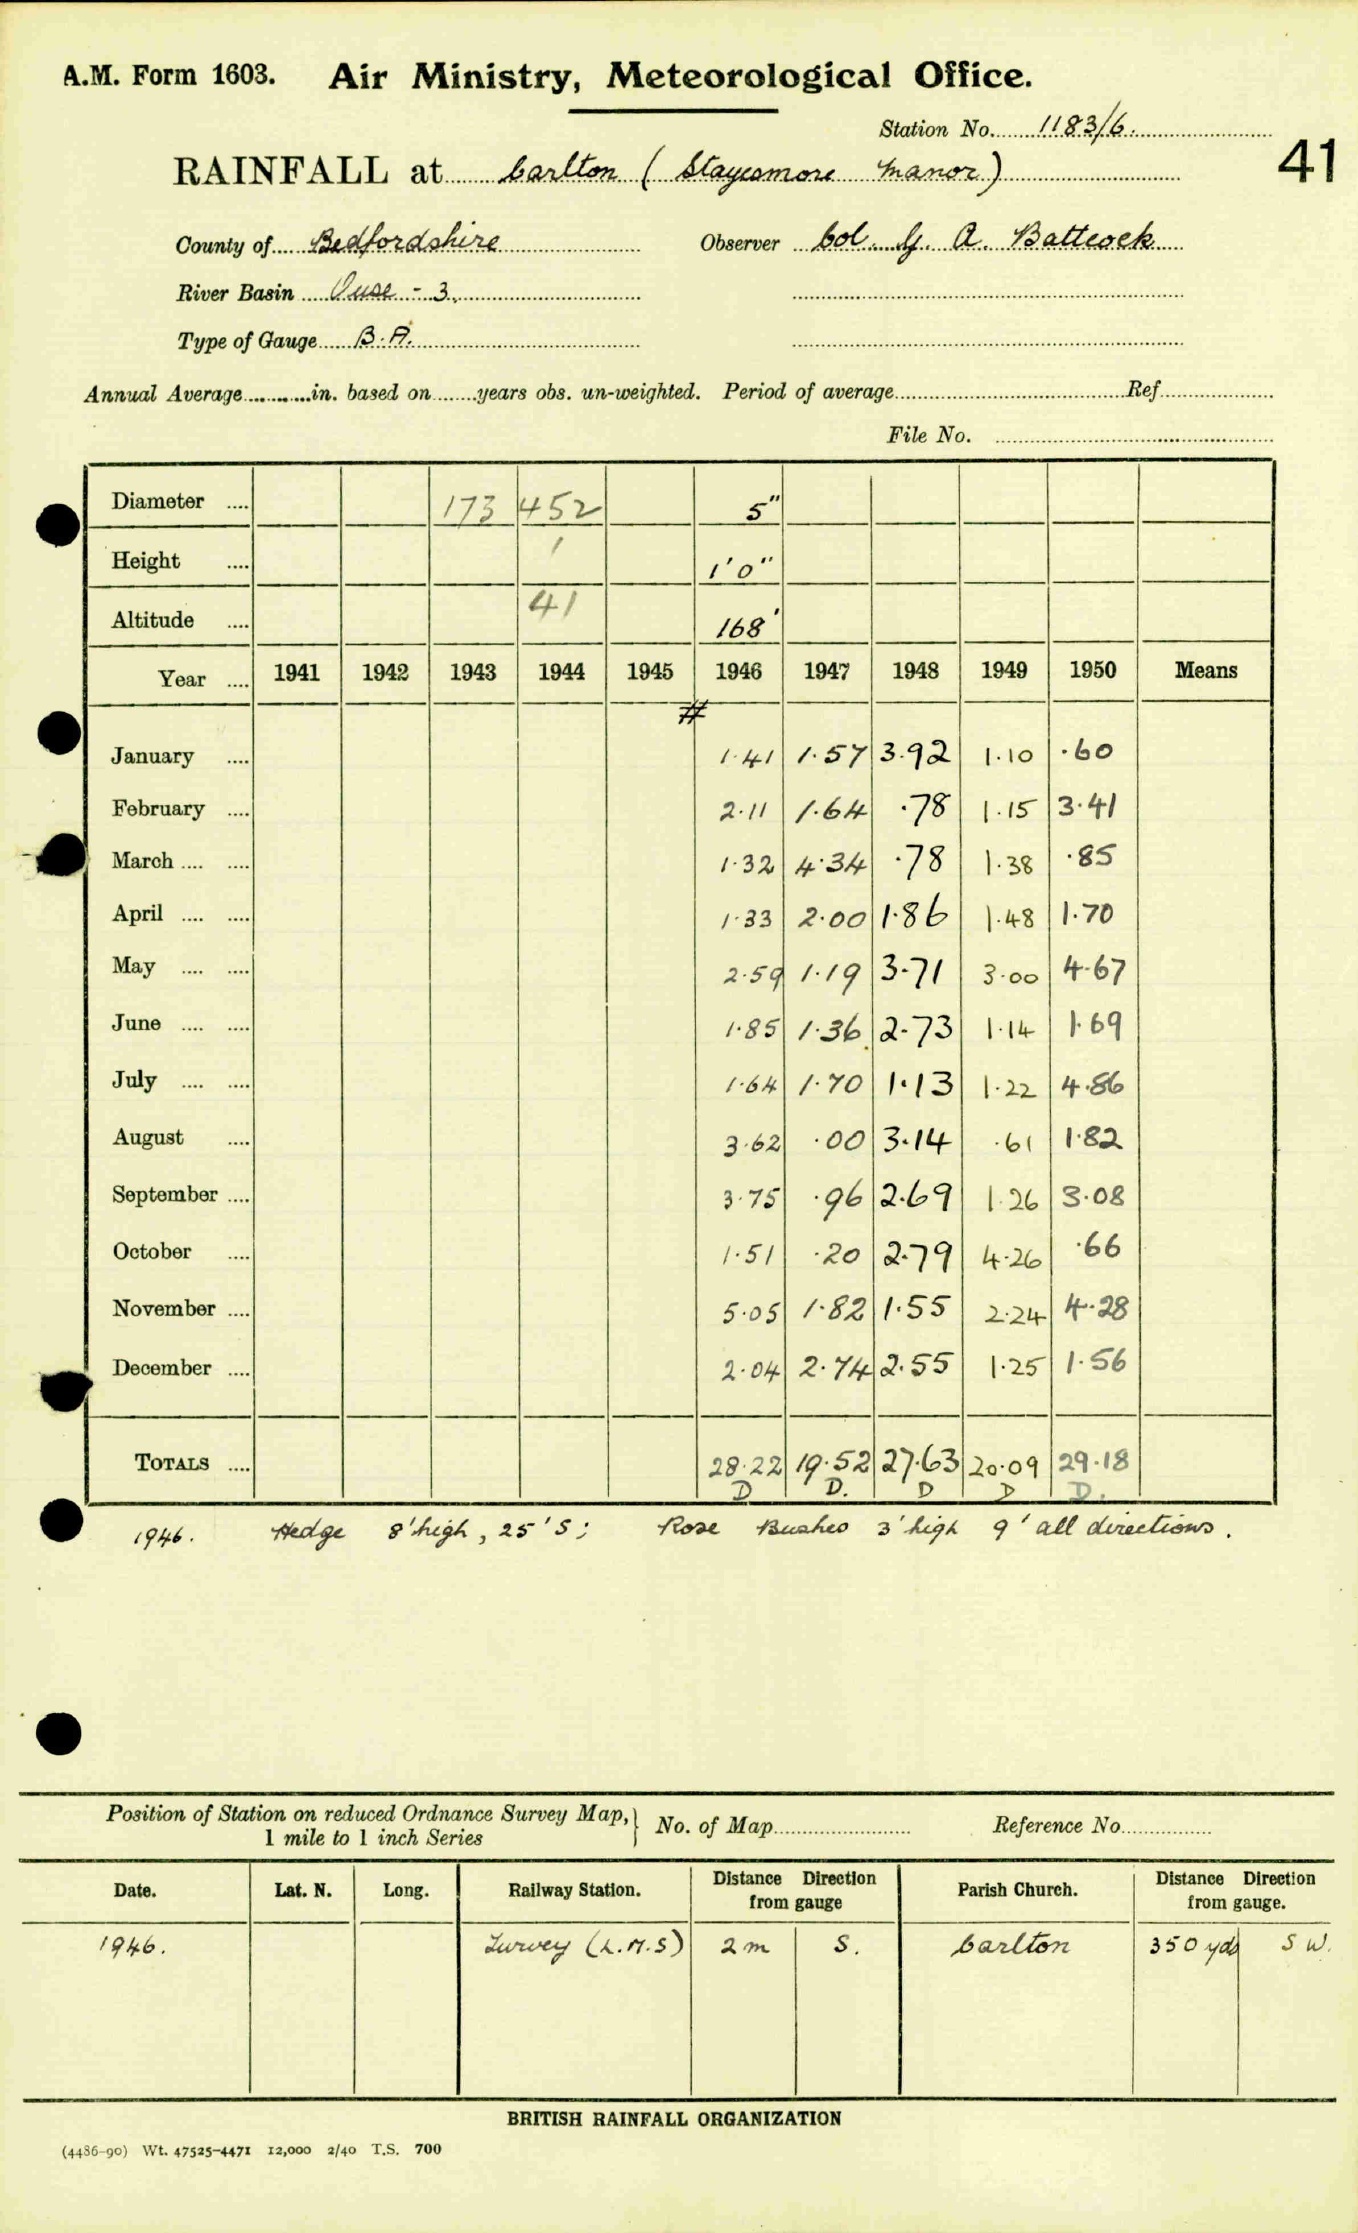 A.M. Form 1603. Air Ministry, Meteorological Office.
Station No. 1183/6.
41
RAINFALL at Carlton (Staysmore Manor)
County of Bedfordshire Observer Col. G. A. Battcock
River Basin Ouse - 3.
Type of Gauge B.A.
Annual Average in. based on years obs. un-weighted. Period of average Ref
File No.
Diameter .... 173 452 5"
Height .... 1 1'0"
Altitude .... 41 168'
Year .... 1941 1942 1943 1944 1945 1946 1947 1948 1949 1950 Means
#
January .... 1.41 1.57 3.92 1.10 .60
February .... 2.11 1.64 .78 1.15 3.41
March .... .... 1.32 4.34 .78 1.38 .85
April .... .... 1.33 2.00 1.86 1.48 1.70
May .... .... 2.59 1.19 3.71 3.00 4.67
June .... .... 1.85 1.36 2.73 1.14 1.69
July .... .... 1.64 1.70 1.13 1.22 4.86
August .... 3.62 .00 3.14 .61 1.82
September .... 3.75 .96 2.69 1.26 3.08
October .... 1.51 .20 2.79 4.26 .66
November .... 5.05 1.82 1.55 2.24 4.28
December .... 2.04 2.74 2.55 1.25 1.56
TOTALS .... 28.22 19.52 27.63 20.09 29.18
D D. D D D.
1946. Hedge 8' high, 25' S; Rose Bushes 3' high 9' all directions.
Position of Station on reduced Ordnance Survey Map,} No. of Map Reference No.
1 mile to 1 inch Series
Date. Lat. N. Long. Railway Station. Distance Direction from gauge Parish Church. Distance Direction from gauge.
1946. Turvey (L.M.S) 2 m S. Carlton 350 yds S W.
BRITISH RAINFALL ORGANIZATION
(4486-90) Wt. 47525-4471 12,000 2/40 T.S. 700